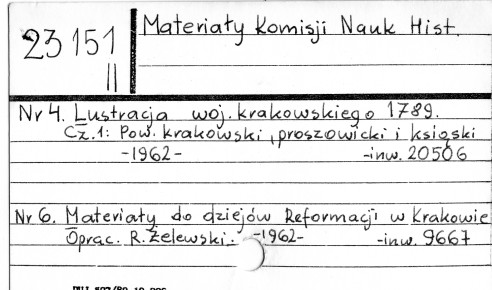 23151
II
Materiały Komisji Nauk Hist.
Nr 4. Lustracja woj. krakowskiego 1789.
Cz. 1: Pow. krakowski, proszowicki i ksiąski
-1962- -inw. 20506
Nr 6. Materiały do dziejów Reformacji w Krakowie
Oprac. R. Żelewski. -1962- -inw. 9667